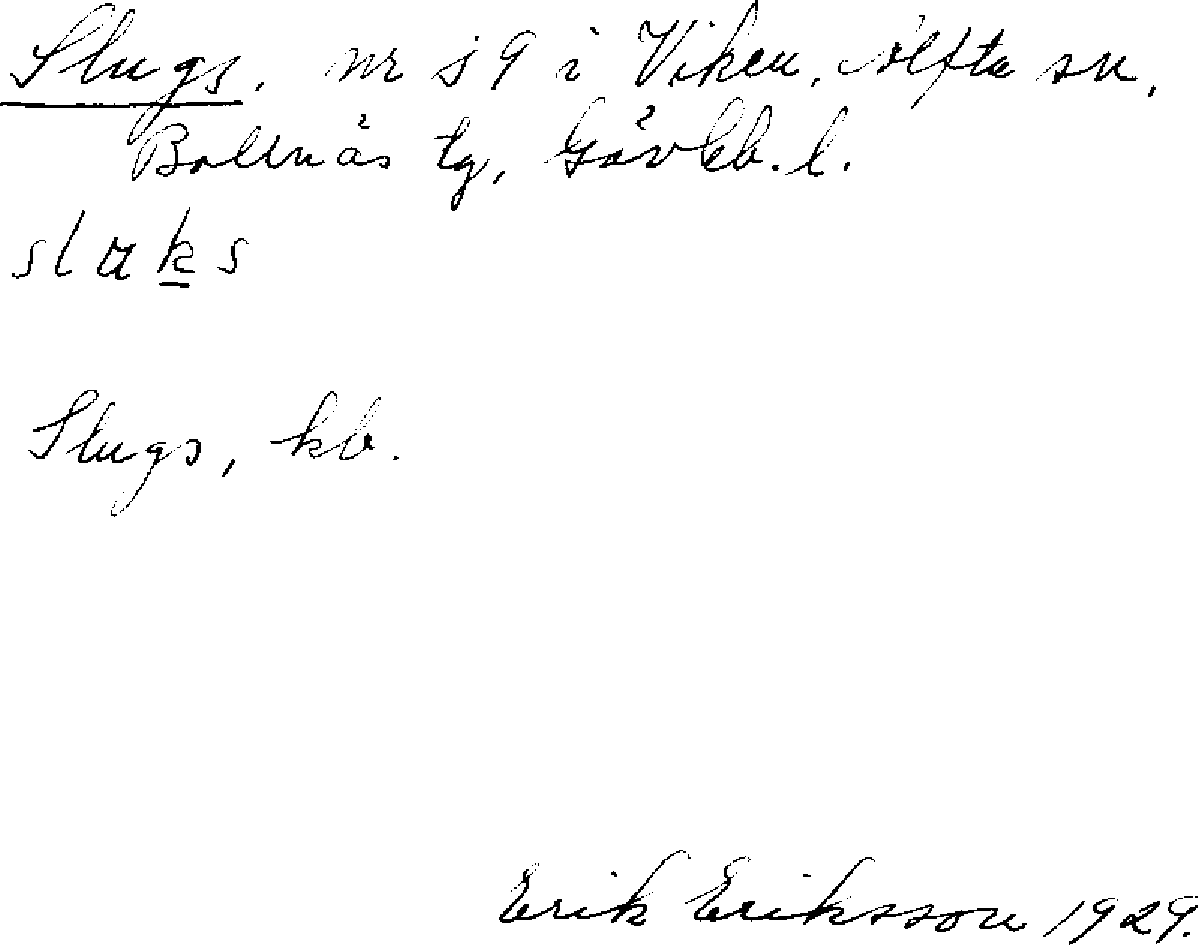 Slugs, nr 59 i Viken, Alfta sn,
Bollnäs tg, Gävleb. l.
slaks
Slugs, kb.
Erik Eriksson 1929.